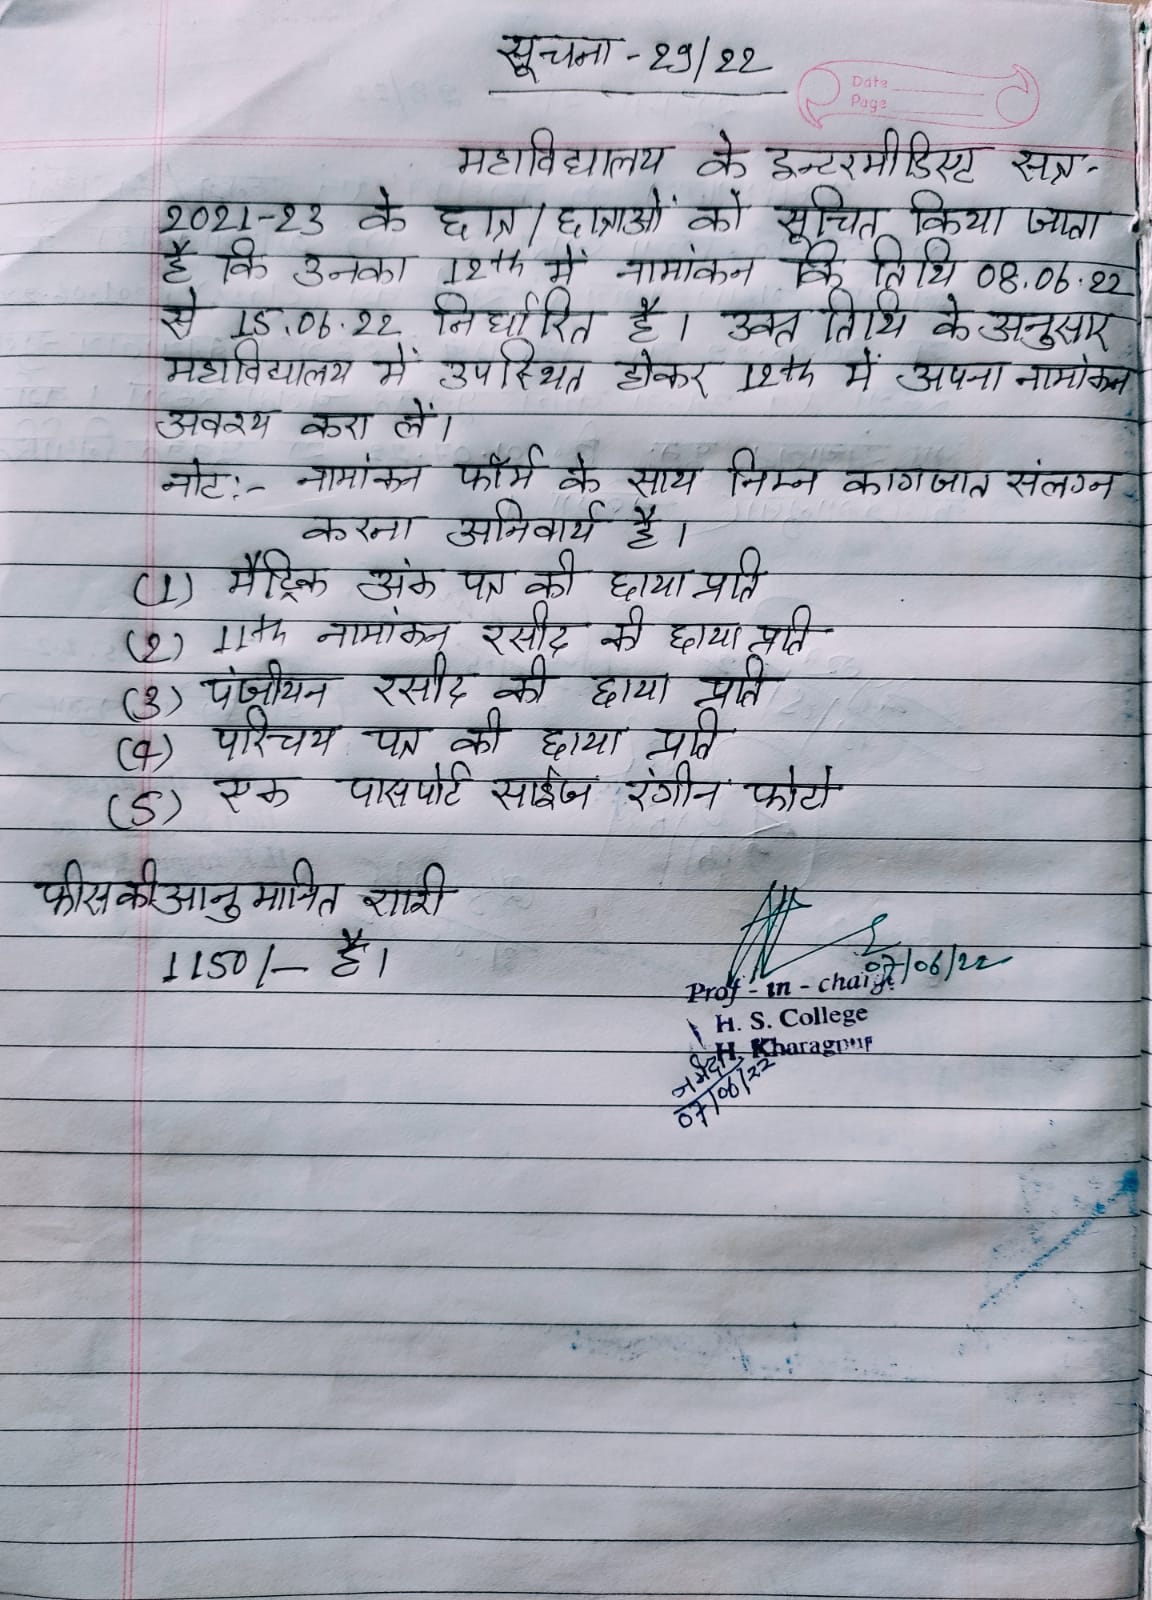 सूचना - 29/22
Date
Page
महाविद्यालय के इन्टरमीडिएट सत्र-
2021-23 के छात्र/छात्राओं को सूचित किया जाता
है कि उनका 12th में नामांकन कि तिथि 08.06.22
से 15.06.22 निर्धारित है। उक्त तिथि के अनुसार
महाविद्यालय में उपस्थित होकर 12th में अपना नामांकन
अवश्य करा लें।
नोट:- नामांकन फॉर्म के साथ निम्न कागजात संलग्न
करना अनिवार्य है।
(1) मैट्रिक अंक पत्र की छाया प्रति
(2) 11th नामांकन रसीद की छाया प्रति
(3) पंजीयन रसीद की छाया प्रति
(4) परिचय पत्र की छाया प्रति
(5) एक पासपोर्ट साईज रंगीन फोटो
फीस की आनुमानित राशी
1150/- है।
07/06/22
Prof - in - charge
H. S. College
H. Kharagpur
07/06/22